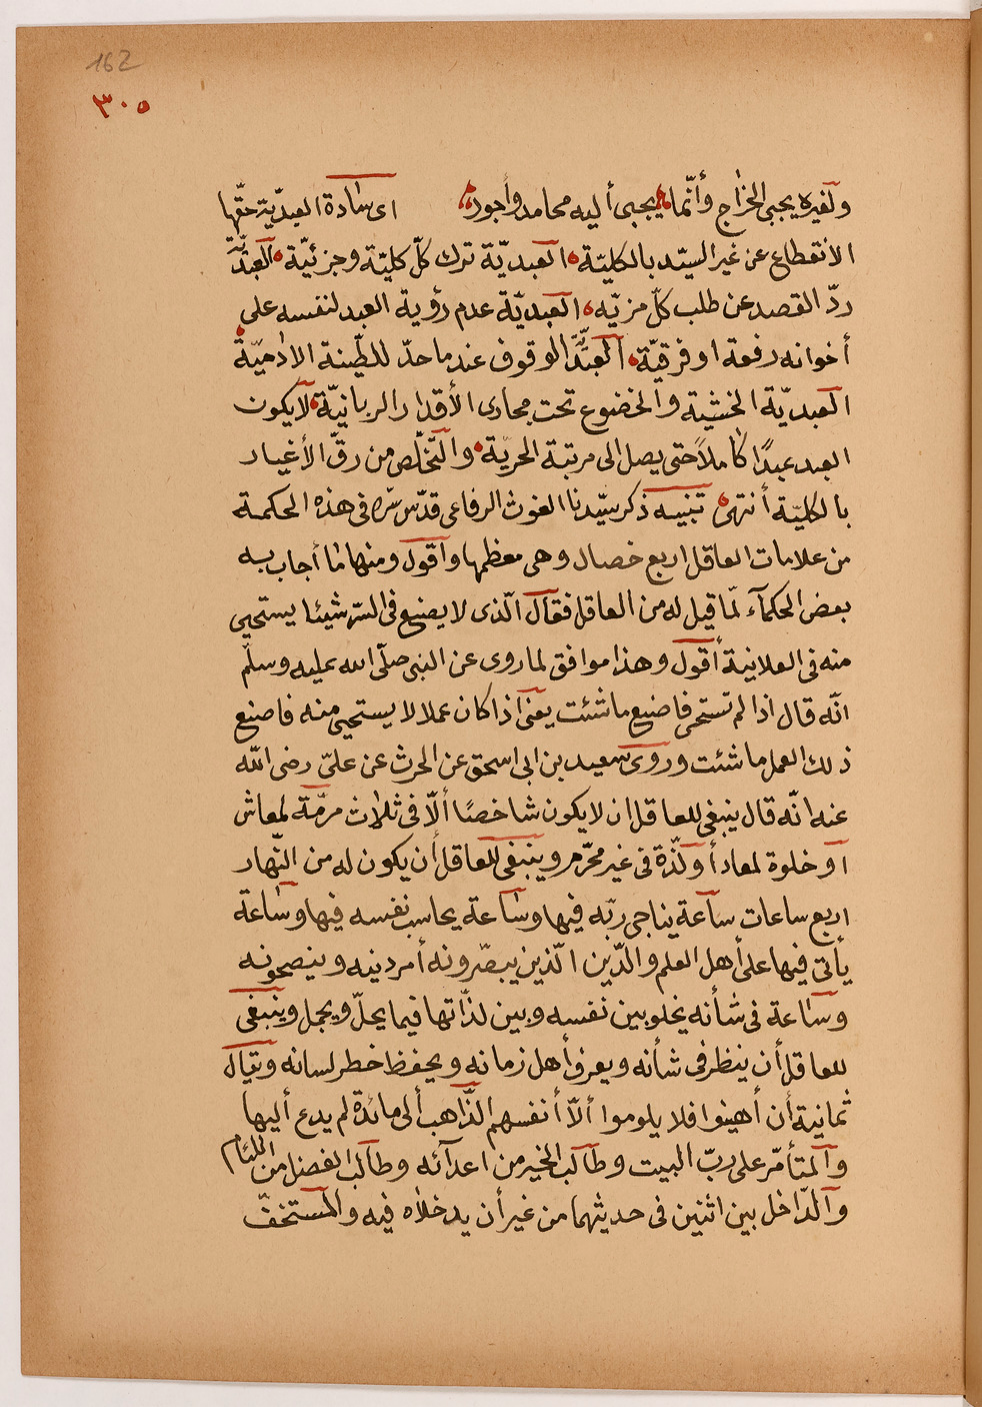 162
٣٠٥
ولغيره يجبى الخراج وأنّما يجبى أليه محامد وأجور اى سادة العبديّة حقّها
الانقطاع عن غير السيّد بالكليّة العبديّة ترك كلّ كليّة وجزئيّة العبديّة
ردّ القصد عن طلب كلّ مزيّه العبديّة عدم رؤية العبد لنفسه على
أخوانه رفعة او فرقيّة العبديّة الوقوف عند ما حدّ للطّينة الادٰميّة
العبديّة الخشية والخضوع تحت مجارى الأقدار الربانيّة لايكون
العبد عبدًا كاملاً حتى يصل الى مرتبة الحريّة والتّخلّص من رقّ الأغيار
بالكليّة أنتهىٰ تنبيه ذكر سيّدنا الغوث الرفاعى قدّس سرّه فى هذه الحكمة
من علامات العاقل اربع خصال وهى معظمها وأقول ومنها مٰا أجاب به
بعض الحكمآء لمّا قيل له من العاقل فقال الّذى لا يصنع فى السّر شيئا يستحيى
منه فى العلانية أقول وهذا موافق لما روى عن النبى صلّى الله عليه وسلّم
انّه قال اذا لم تستحى فاصنع ما شئت يعنى اذا كان عملا لا يستحيى منه فاصنع
ذلك العمل ما شئت وروى سعيد بن ابى اسحق عن الحرث عن علىّ رضى الله
عنه انّه قال ينبغى للعاقل ان لا يكون شاخصًا ألّا فى ثلاث مرمّة لمعاش
او خلوة لمعاد أو لذّة فى غير محرّم وينبغى للعاقل أن يكون له من النّهار
اربع ساعات ساعة يناجى ربّه فيها وسٰاعة يحاسب نفسه فيها وسٰاعة
يأتى فيها على أهل العلم والدّين الّذين يبصّرونه أمر دينه وينصحونه
وسٰاعة فى شأنه يخلو بين نفسه وبين لذّاتها فيما يحلّ ويجمل وينبغى
للعاقل أن ينظر فى شأنه ويعرف أهل زمانه ويحفظ خطر لسانه ويقال
ثمانية أن أهينوا فلا يلوموا ألّا أنفسهم الذّاهب ألى مائدة لم يدع أليها
والمتأمّر على ربّ البيت وطالب الخير من اعدآئه وطالب الفضل من اللئام
والدّاخل بين اثنين فى حديثهما من غير أن يدخلاه فيه والمستخفّ